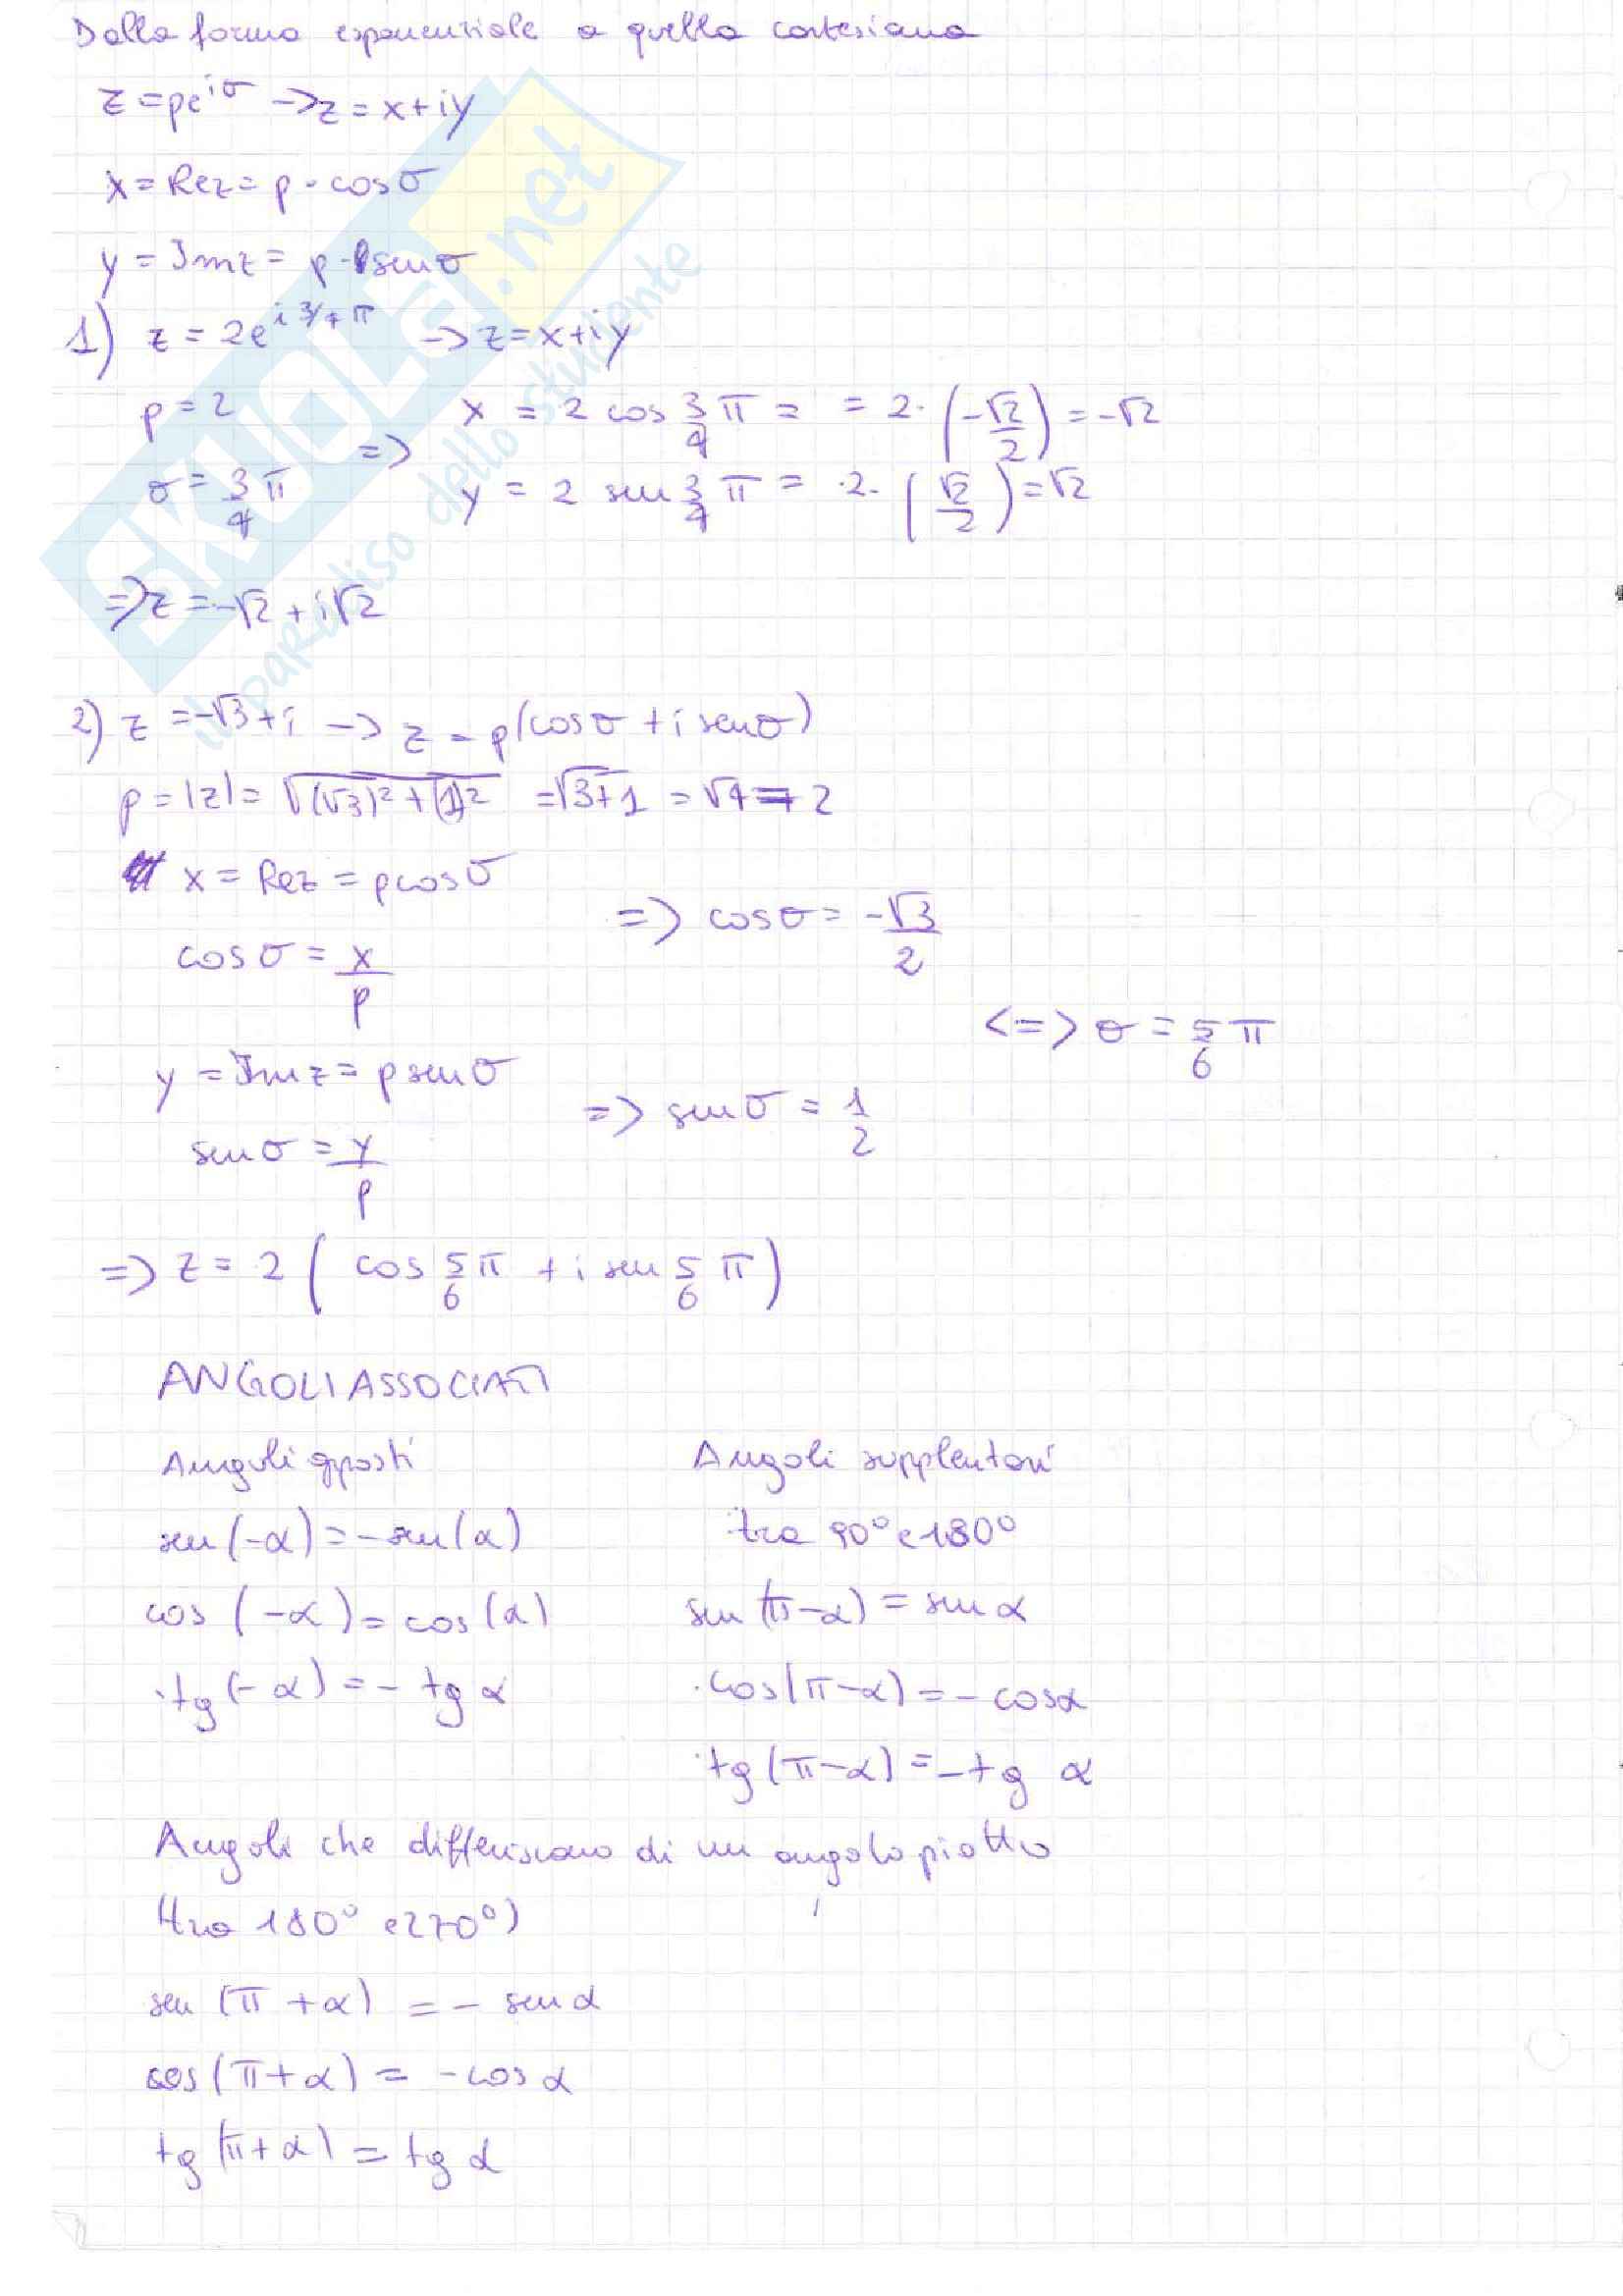 Dalla forma esponenziale a quella cartesiana
z = ρe^{iσ} -> z = x+iy
x = Rez = ρ · cosσ
y = Imz = ρ · senσ
1) z = 2e^{i 3/4 π} -> z = x+iy
ρ = 2
x = 2 cos 3/4 π = = 2 · (-√2/2) = -√2
=>
σ = 3/4 π
y = 2 sen 3/4 π = 2 · (√2/2) = √2
=> z = -√2 + i√2
2) z = -√3 + i -> z = ρ(cosσ + i senσ)
ρ = |z| = √((√3)² + (1)²) = √3+1 = √4 = 2
x = Rez = ρcosσ
=> cosσ = -√3/2
cosσ = x/ρ
<=> σ = 5/6 π
y = Imz = ρ senσ
=> senσ = 1/2
senσ = y/ρ
=> z = 2 ( cos 5/6 π + i sen 5/6 π )
ANGOLI ASSOCIATI
Angoli opposti
Angoli supplentari
sen(-α) = -sen(α)
tra 90° e 180°
cos (-α) = cos(α)
sen(π-α) = sen α
tg(-α) = - tg α
cos(π-α) = - cosα
tg(π-α) = -tg α
Angoli che differiscono di un angolo piatto
(tra 180° e 270°)
sen (π+α) = - sen α
cos(π+α) = -cos α
tg(π+α) = tg α
SKUOLA.net
il paradiso dello studente